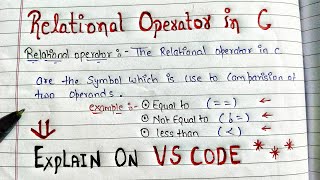 Relational Operator in C
Relational operator :- The Relational operator in c
are the Symbol which is use to Comparision of
two operands.
example :- ⊙ Equal to (==) ←
⊙ Not Equal to (!=) ←
⊙ less than (<) ←
EXPLAIN ON VS CODE ***